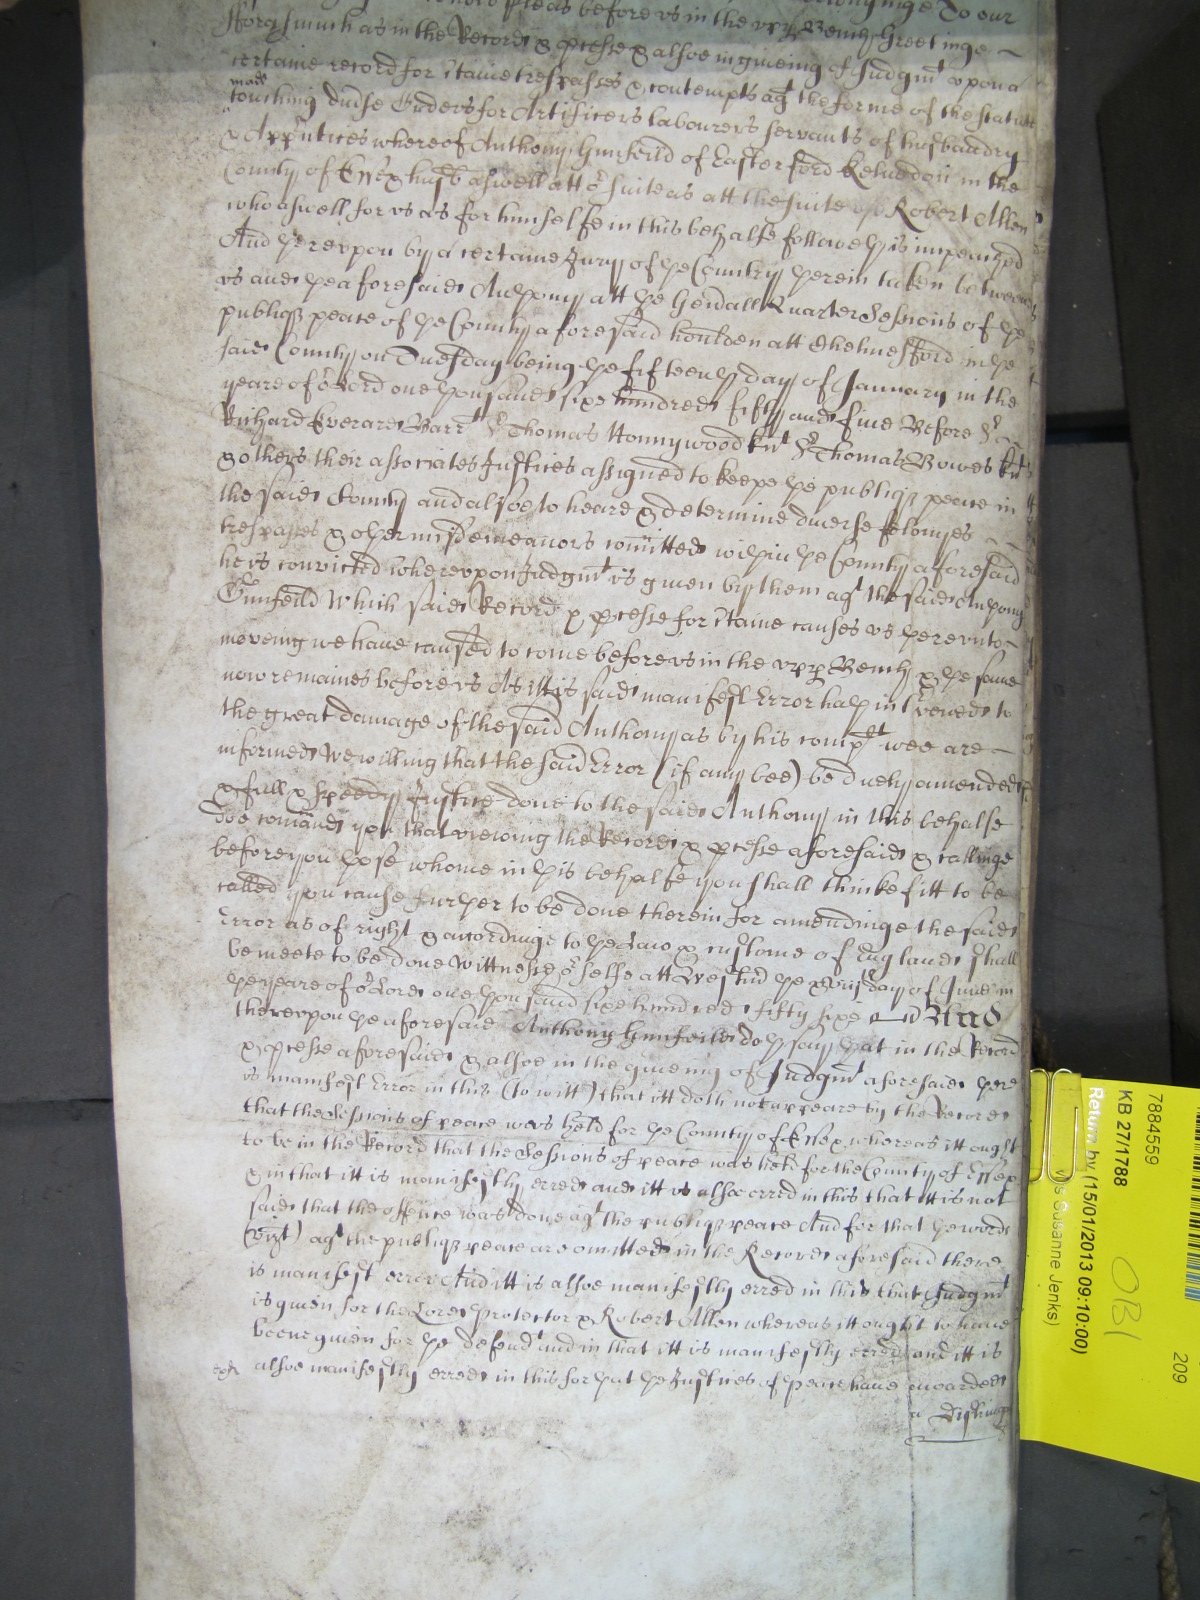 to hold pleas before vs in the vpp Bench Greetinge
fforasmuch as in the Record & pcesse & alsoe in giveing of Judgmt vpon a
certaine record for ctaine trespasses & contempts agt the forme of the statute
made
touching diuse Orders for Artificers labourers servants of husbandry
& Apprntices whereof Anthony Hunfeild of Easterford Keluedon in the
County of Essex husb aswell att or suite as att the suite of Robert Allen
who aswell for vs as for himselfe in this behalfe followeth is impeached
And therevpon by a certaine Jury of the Country therein taken betweene
vs and the aforesaid Anthony att the Genrall Quarter Sessions of the
publiq peace of the County aforesaid houlden att Chelmesfford in the
said County on Tuesday being the fifteenth day of January in the
yeare of or Lord one thousand six hundred fifty and five Before Sr
Richard Everard Barrt Sr Thomas Honnywood Knt Sr Thomas Bowes Knt
& others their associates Justices assigned to keepe the publiq peace in
the said County and alsoe to heare & determine diuerse felonyes
trespasses & other misdemeanors comitted within the County aforesaid
he is convicted wherevpon Judgmt is giuen by them agt the said Anthony
Hunfeild Which said Record & pcesse for ctaine causes vs therevnto
moveing we have caused to come before vs in the vpp Bench & the same
now remaines before vs As itt is said manifest Error hath intervened to
the great damage of the said Anthony as by his complt wee are
informed We willing that the said Error (if any bee) be duely amended
& full & speedy Justice done to the said Anthony in this behalfe
doe comand you that viewing the Record & pcesse aforesaid & callinge
before you those whome in this behalfe you shall thinke fitt to be
called you cause further to be done therein for amendinge the said
Error as of right & accordinge to the Law & custome of England shall
be meete to be done Wittnesse or selfe att Westmr the day of June in
the yeare of or Lord one thousand six hundred fifty sixe And
therevpon the aforesaid Anthony Hunfeild doth say that in the Record
& pcesse aforesaid & alsoe in the giueing of Judgmt aforesaid there
is manifest Error in this (to witt) that itt doth not appeare by the Record
that the Sessions of peace was held for the County of Essex whereas itt ought
to be in the Record that the Sessions of peace was held for the County of Essex
& in that itt is manifestly erred and itt is alsoe erred in this that itt is not
said that the offence was done agt the publiq peace And for that the words
(vizt) agt the publiq peace are omitted in the Record aforesaid there
is manifest error And itt is alsoe manifestly erred in this that Judgmt
is giuen for the Lord Protector & Robert Allen whereas itt ought to haue
beene giuen for the defendt and in that itt is manifestly erred and itt is
alsoe manifestly erred in this for that the Justices of peace haue awarded
a Distringas
7884559
KB 27/1788
Return by (15/01/2013 09:10:00)
Susanne Jenks)
OBI
209